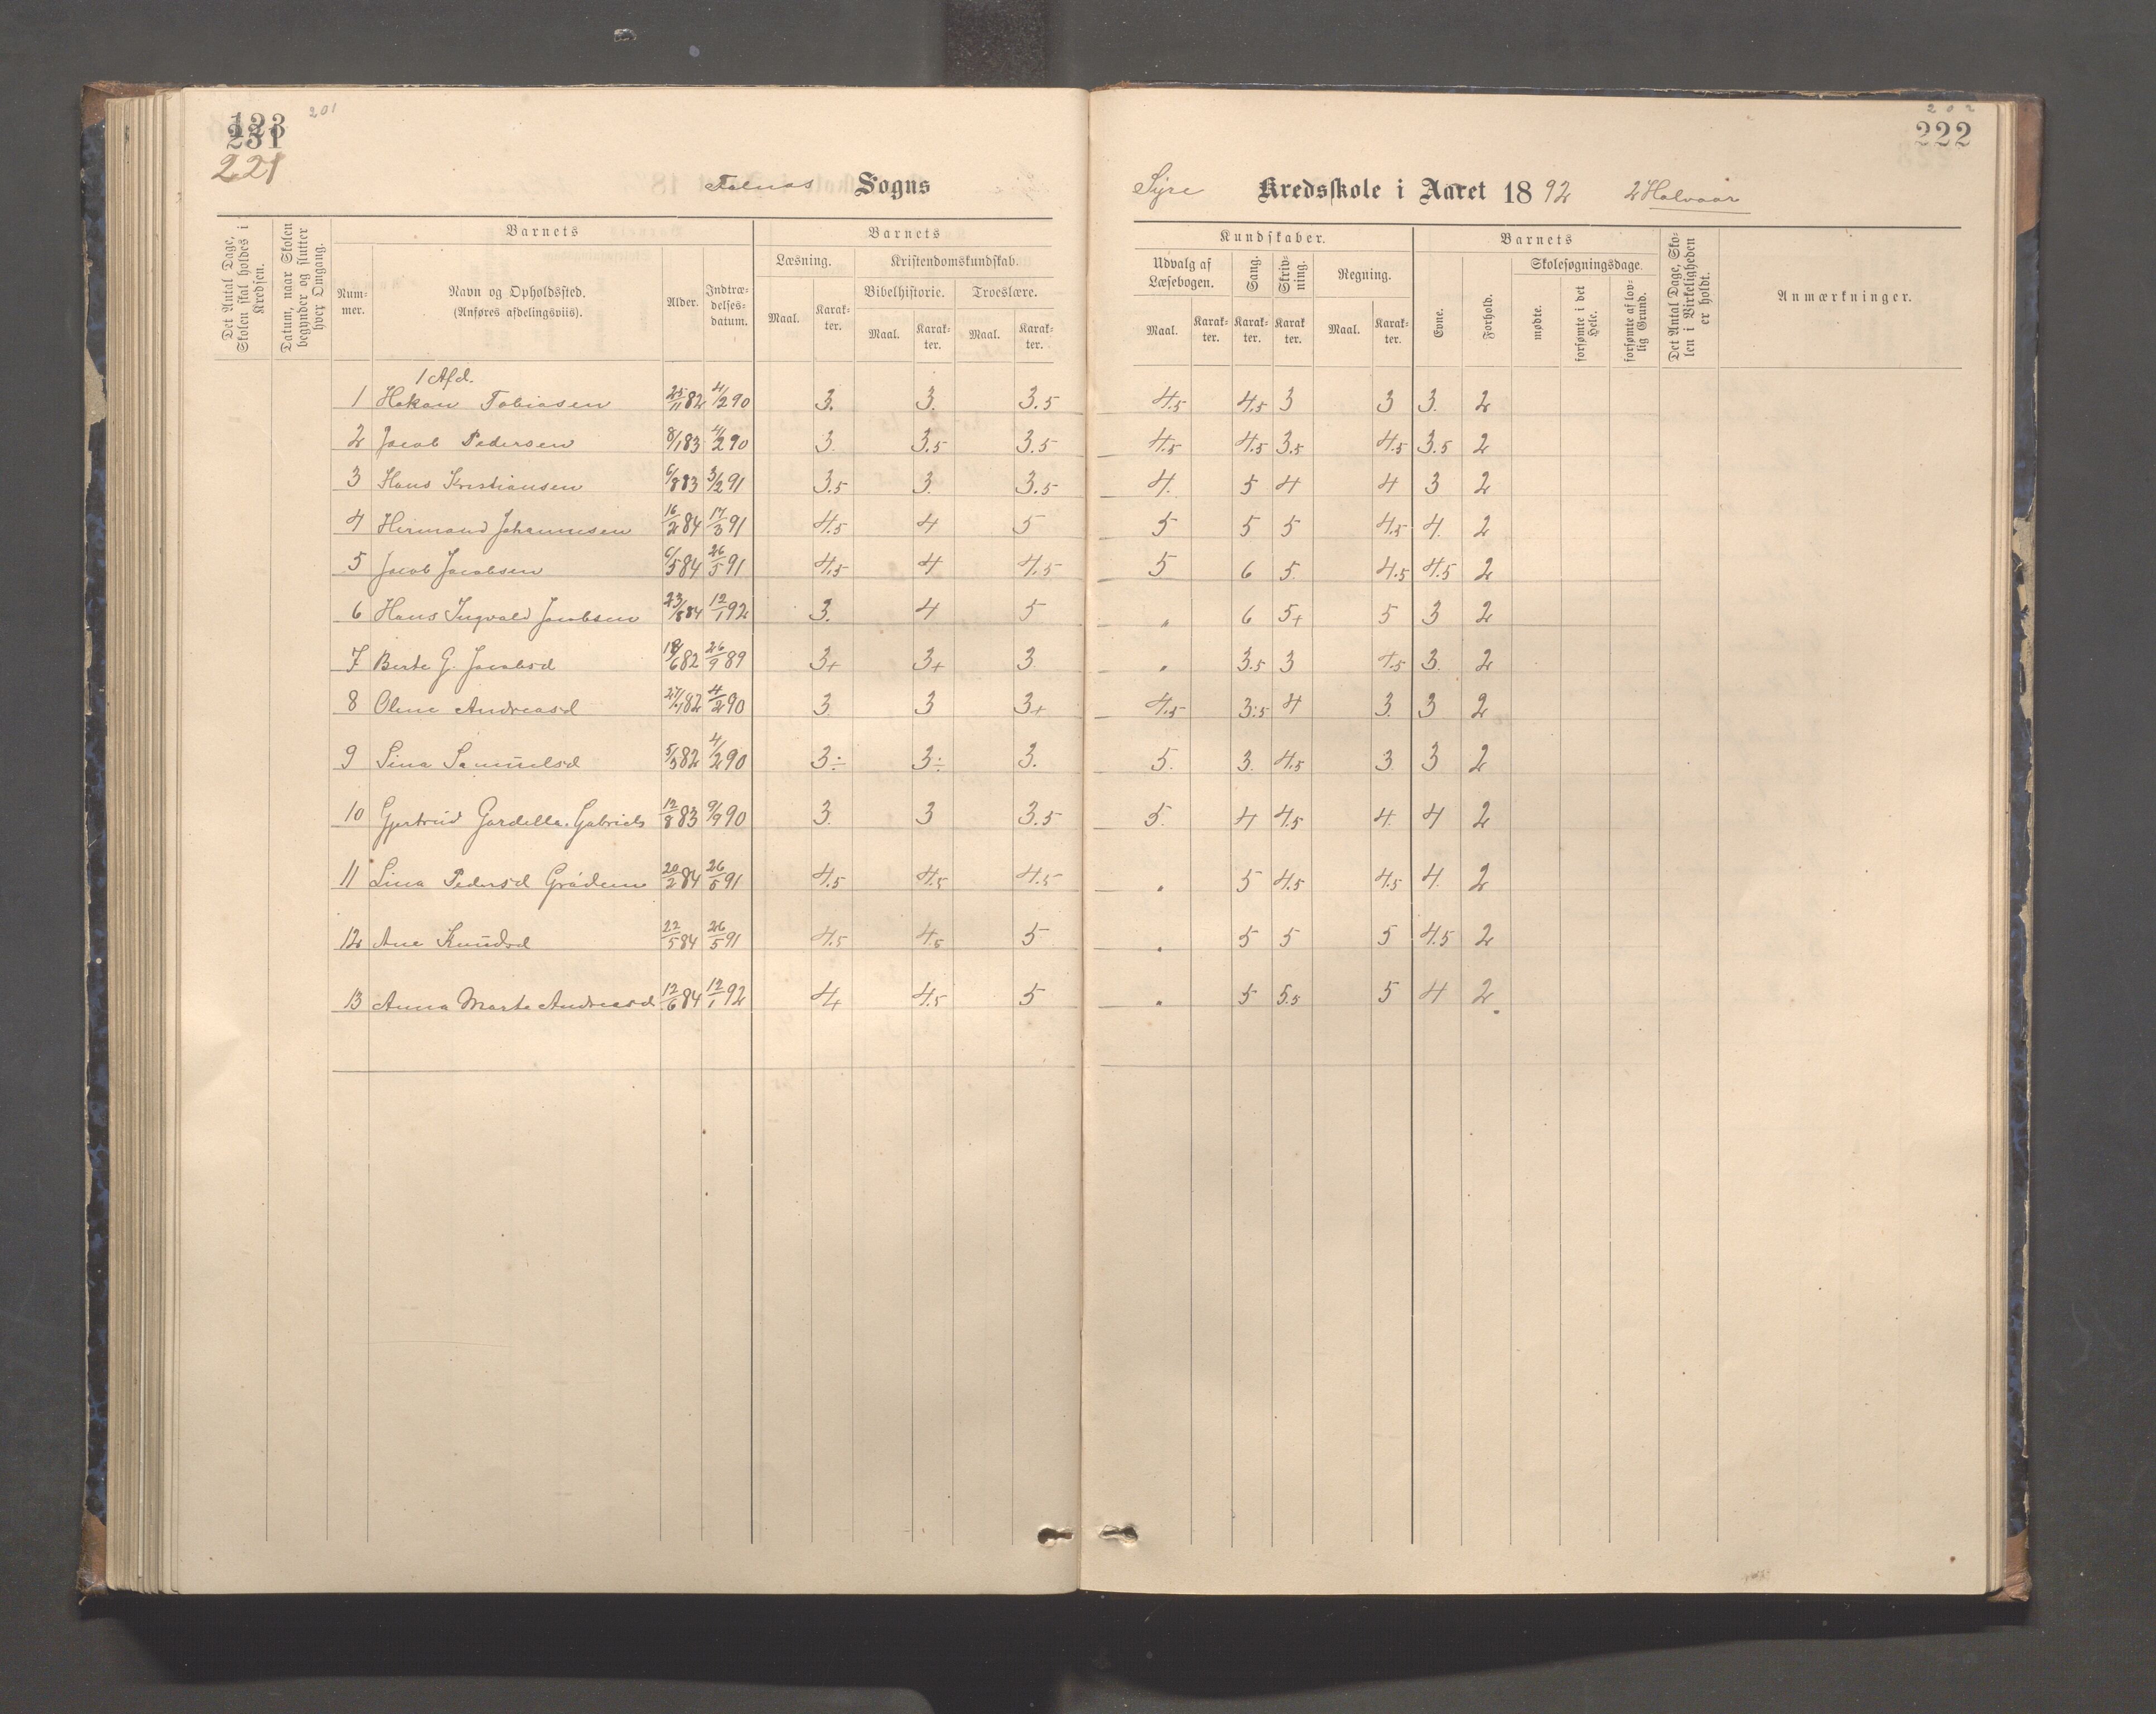 201
123
231
221
Falnes Sogns
Det Antal Dage, Skolen skal holdes i Kredsen.
Datum, naar Skolen begynder og slutter hver Omgang.
Barnets
Nummer.
Navn og Opholdssted.
(Anføres afdelingsviis).
Alder.
Indtrædelsesdatum.
Barnets
Læsning.
Maal. Karakter.
Kristendomskundskab.
Bibelhistorie. Troeslære.
Maal. Karakter. Maal. Karakter.
1 Afd.
1 Hakan Tobiasen 25/11 82 4/2 90 3. 3. 3.5
2 Jacob Pedersen 8/1 83 4/2 90 3. 3.5 3.5
3 Hans Kristiansen 6/8 83 3/2 91 3.5 3. 3.5
4 Hermand Johannesen 16/2 84 17/3 91 4.5 4 5
5 Jacob Jacobsen 6/5 84 26/5 91 4.5 4 4.5
6 Hans Ingvald Jacobsen 23/8 84 12/1 92 3. 4 5
7 Berte G. Jacobsd 18/6 82 26/9 89 3+ 3+ 3
8 Oline Andreasd 27/1 82 4/2 90 3. 3 3+
9 Sina Samuelsd 5/3 82 4/2 90 3÷ 3÷ 3.
10 Gjertrud Gardella. Gabriels 12/8 83 9/9 90 3. 3 3.5
11 Lina Pedersd Grådem 20/2 84 26/5 91 4.5 4.5 4.5
12 Ane Knudsd 22/5 84 26/5 91 4.5 4.5 5
13 Anna Marta Andreasd. 12/6 84 12/1 92 4+ 4.5 5
202
222
Syre Kredsskole i Aaret 1892 2 Halvaar
Kundskaber.
Udvalg af Læsebogen.
Maal. Karakter.
Sang.
Karakter.
Skrivning.
Karakter.
Regning.
Maal. Karakter.
Barnets
Evne.
Forhold.
Skolesøgningsdage.
mødte.
forsømte i det Hele.
forsømte af lovlig Grund.
Det Antal Dage, Skolen i Virkeligheden er holdt.
Anmærkninger.
4.5 4.5 3 3 3. 2
4.5 4.5 3.5 4.5 3.5 2
4. 5 4 4 3 2
5 5 5 4.5 4. 2
5 6 5. 4.5 4.5 2
" 6 5+ 5 3 2
" 3.5 3 4.5 3. 2
4.5 3.5 4 3. 3 2
5. 3. 4.5 3 3 2
5. 4 4.5 4. 4 2
" 5 4.5 4.5 4. 2
" 5 5 5 4.5 2
" 5 5.5 5 4 2